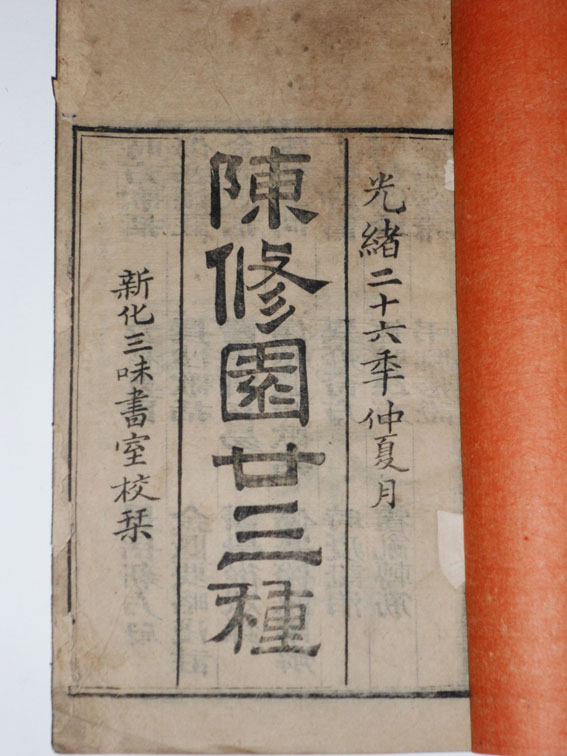 光緒二十六年仲夏月
陳修園廿三種
新化三味書室校栞